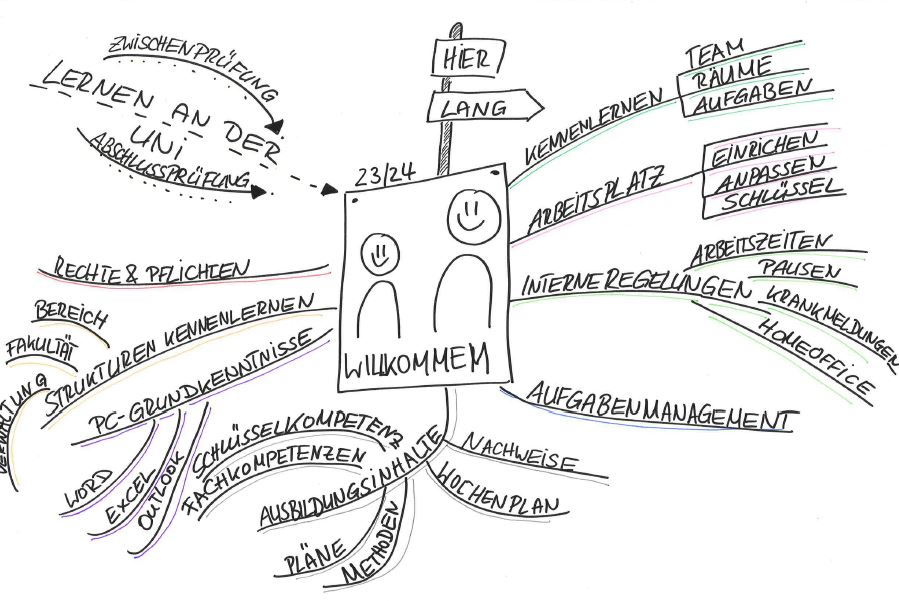 ZWISCHENPRÜFUNG
LERNEN AN DER
UNI
ABSCHLUSSPRÜFUNG
HIER
LANG
23/24
WILLKOMMEM
KENNENLERNEN
TEAM
RÄUME
AUFGABEN
ARBEITSPLATZ
EINRICHEN
ANPASSEN
SCHLÜSSEL
INTERNE REGELUNGEN
ARBEITSZEITEN
PAUSEN
KRANKMELDUNGEN
HOMEOFFICE
AUFGABENMANAGEMENT
AUSBILDUNGSINHALTE
NACHWEISE
WOCHENPLAN
METHODEN
PLÄNE
FACHKOMPETENZEN
SCHLÜSSELKOMPETENZ
PC-GRUNDKENNTNISSE
WORD
EXCEL
OUTLOOK
STRUKTUREN KENNENLERNEN
BEREICH
FAKULTÄT
VERWALTUNG
RECHTE & PFLICHTEN